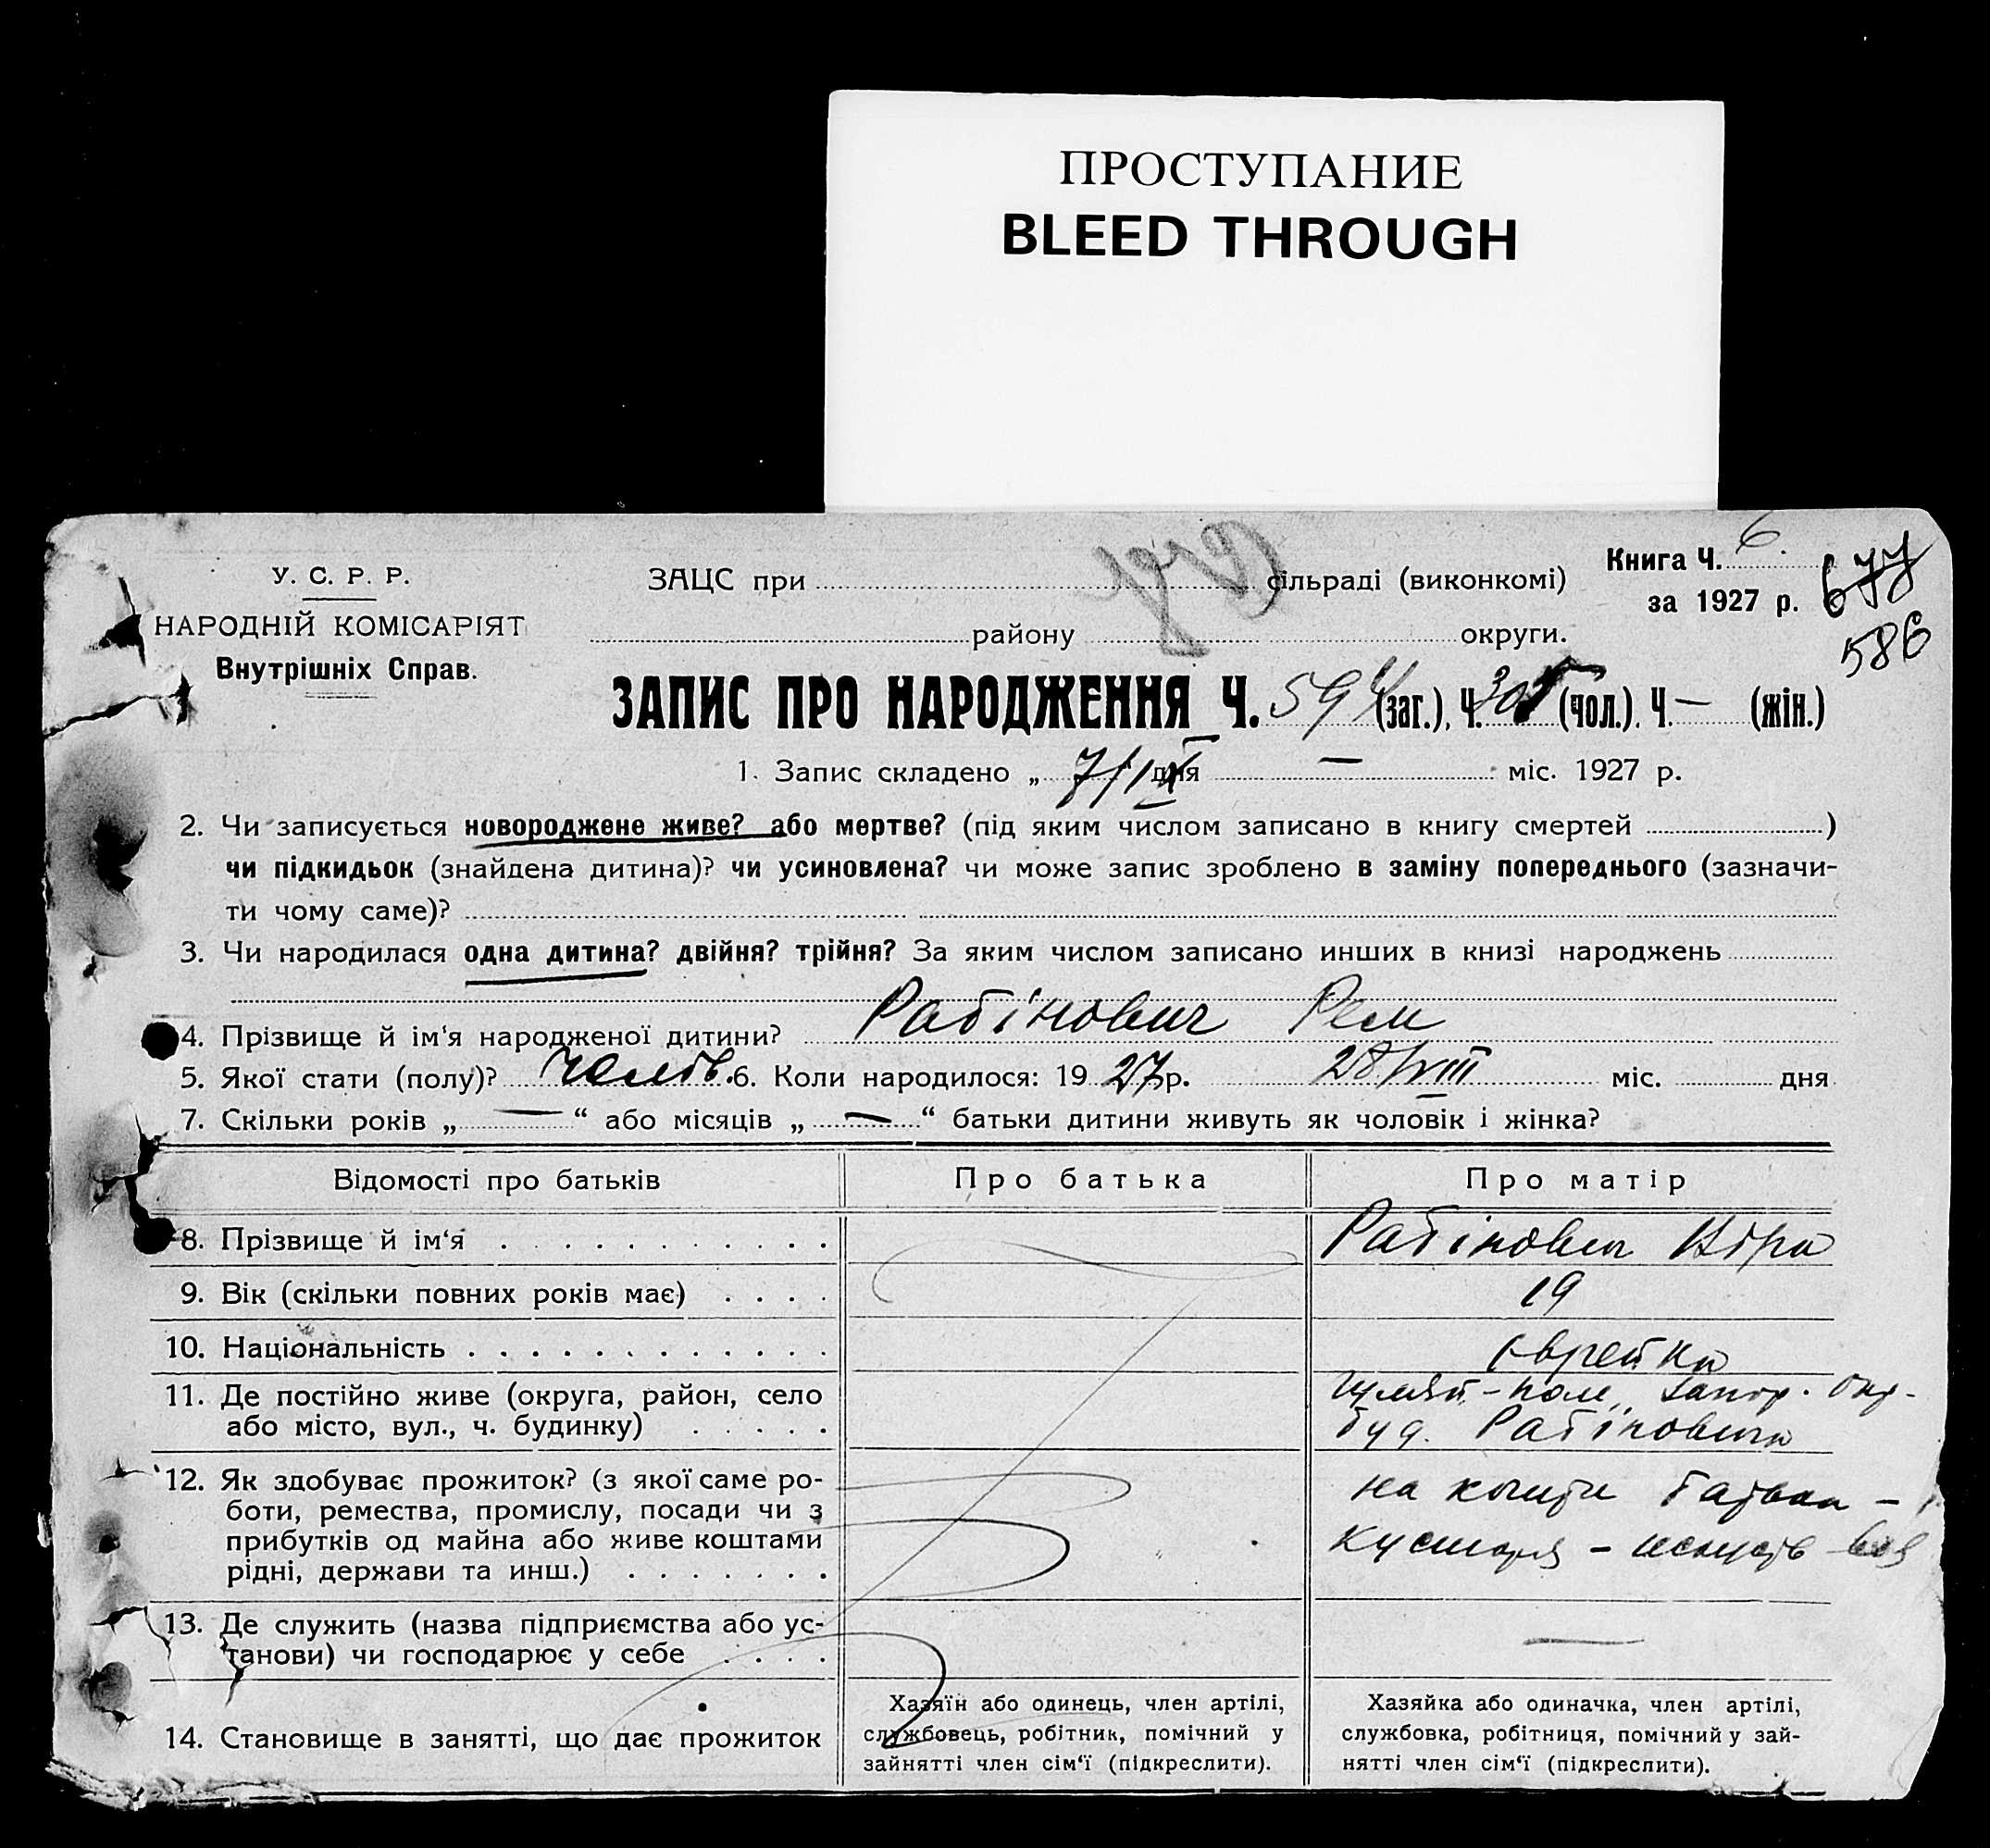 ПРОСТУПАНИЕ
BLEED THROUGH
У. С. Р. Р.
НАРОДНІЙ КОМІСАРІЯТ
Внутрішніх Справ.
ЗАЦС при сільраді (виконкомі)
району округи.
Книга Ч. 6.
за 1927 р. 677
586
ЗАПИС ПРО НАРОДЖЕННЯ Ч. 594 (заг.), Ч. 305 (чол.). Ч. — (жін.)
1. Запис складено „ 7/IX “ дня — міс. 1927 р.
2. Чи записується новороджене живе? або мертве? (під яким числом записано в книгу смертей )
чи підкидьок (знайдена дитина)? чи усиновлена? чи може запис зроблено в заміну попереднього (зазначи-
ти чому саме)?
3. Чи народилася одна дитина? двійня? трійня? За яким числом записано инших в книзі народжень
4. Прізвище й ім‘я народженої дитини? Рабінович Рем
5. Якої стати (полу)? чолов. 6. Коли народилося: 19 27 р. 28/VIII міс. дня
7. Скільки років „ — “ або місяців „ — “ батьки дитини живуть як чоловік і жінка?
Відомості про батьків Про батька Про матір
8. Прізвище й ім‘я Рабінович
9. Вік (скільки повних років має) 19
10. Національність єврейка
11. Де постійно живе (округа, район, село Гуляй-поле, Запор. окр.
або місто, вул., ч. будинку) буд. Рабіновича
12. Як здобуває прожиток? (з якої саме ро-
боти, ремества, промислу, посади чи з
прибутків од майна або живе коштами
рідні, держави та инш.)
на кошти батька -
кустаря -
13. Де служить (назва підприємства або ус-
танови) чи господарює у себе —
14. Становище в занятті, що дає прожиток
Хазяїн або одинець, член артілі,
службовець, робітник, помічний у
зайнятті член сім‘ї (підкреслити).
Хазяйка або одиначка, член артілі,
службовка, робітниця, помічний у зай-
нятті член сім‘ї (підкреслити).